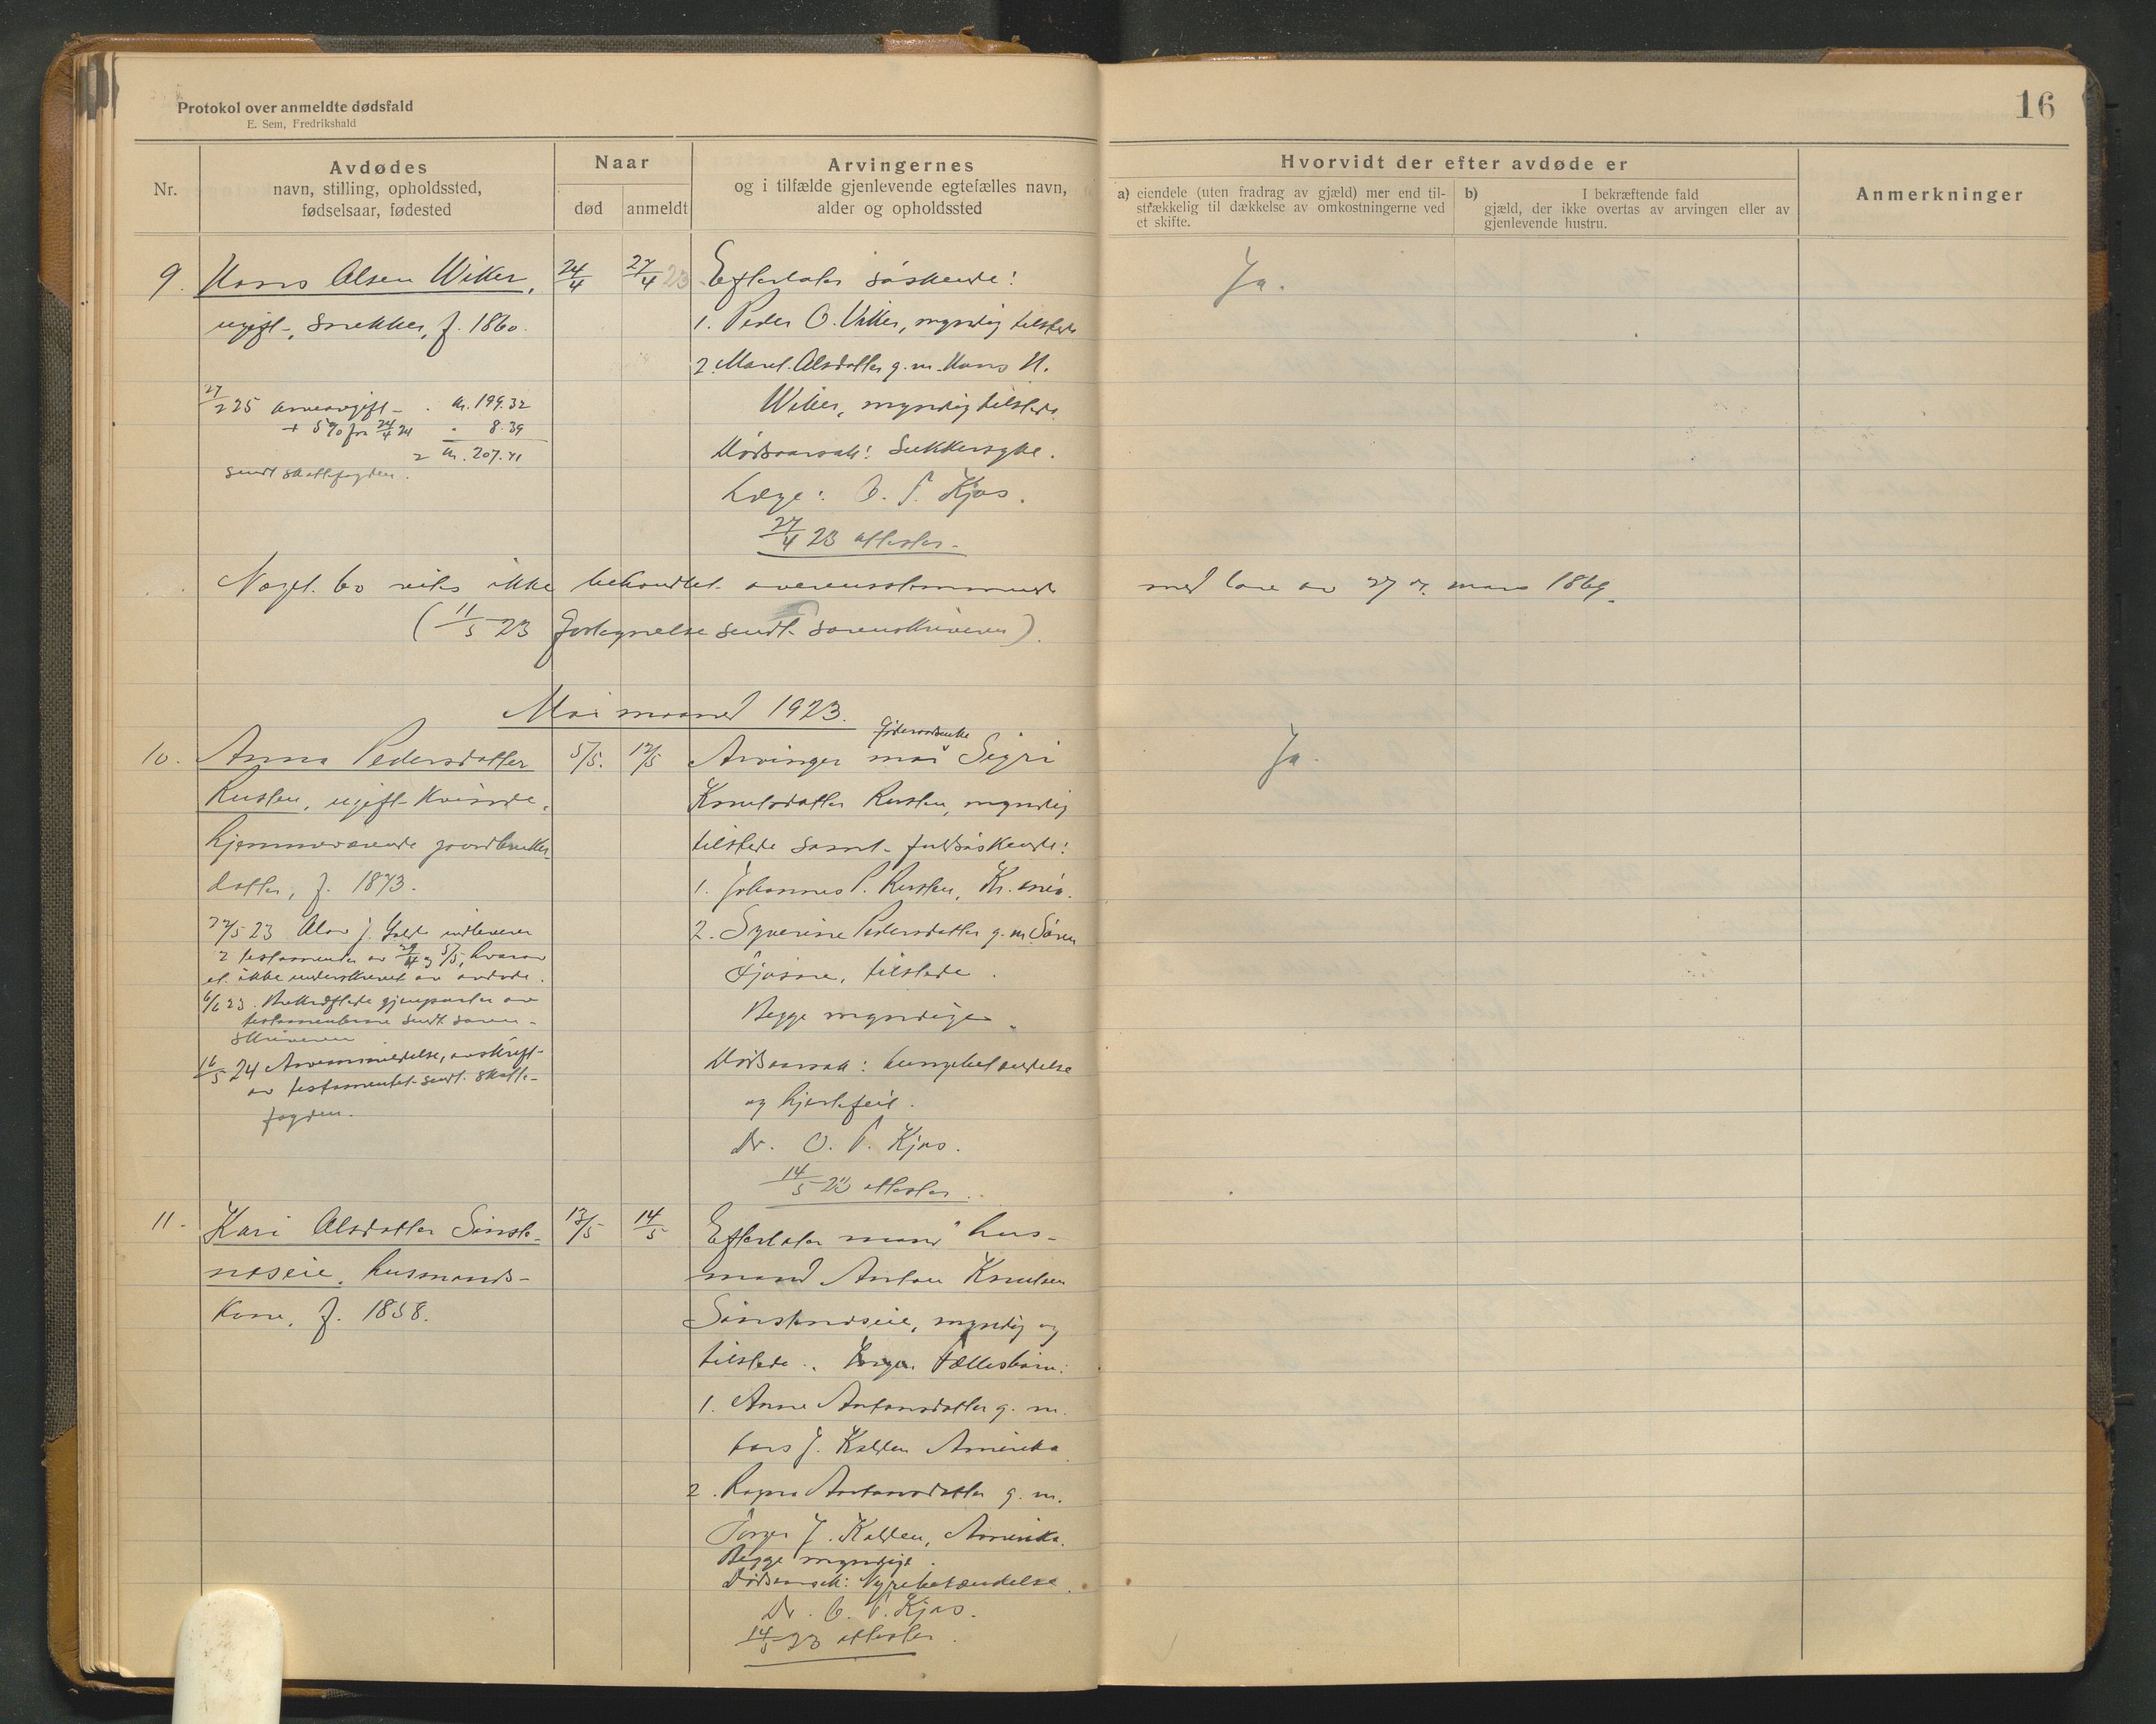 Protokol over anmeldte dødsfald
E. Sem, Fredrikshald
16
Nr.
Avdødes
navn, stilling, opholdssted,
fødselsaar, fødested
Naar
død
anmeldt
Arvingernes
og i tilfælde gjenlevende egtefælles navn,
alder og opholdssted
Hvorvidt der efter avdøde er
a) eiendele (uten fradrag av gjæld) mer end til-
strækkelig til dækkelse av omkostningerne ved
et skifte.
b) I bekræftende fald
gjæld, der ikke overtas av arvingen eller av
gjenlevende hustru.
Anmerkninger
9. Hans Olsen Wiker,
ugift, snekker, f. 1860.
24/4
27/4 23
Efterlater søskende:
1. Peder O. Viker, myndig tilstede
2. Marit Olsdatter g.m. Hans H.
Wiker, myndig tilstede.
Dødsaarsak: Sukkersyke.
Læge: O. P. Kjos.
27/4 23 attester.
Ja.
27/2 25 arveavgift kr. 199.32
+ 5% fra 24/4 24 " 8.39
kr. 207.71
sendt skattefogden.
Noget bo vites ikke behandlet overensstemmende med lov av 27de mars 1869.
(11/5 23 fortegnelse sendt sorenskriveren).
Mai maaned 1923.
10. Anna Pedersdatter
Rusten, ugift kvinde,
hjemmeværende jordbruker
datter, f. 1873.
5/5.
12/5
Arvinger mor føderaadsenke Sigri
Knutsdatter Rusten, myndig
tilstede samt fuldsøskende:
1. Johannes P. Rusten, Kr.ania.
2. Syverine Pedersdatter g.m. Søren
tilstede.
Begge myndige.
Dødsaarsak: lungebetændelse
og hjertefeil.
Dr. O. P. Kjos.
14/5 23 attester.
Ja.
22/5 23 Olav J. indleverer
2 testamenter av 29/4 og 5/5, hvorav
et ikke underskrevet av avdøde.
6/6 23. Bekræftede gjenparter av
testamenterne sendt soren-
skriveren
16/5 24 Arveanmeldelse, avskrift
av testamentet sendt skatte-
fogden.
11. Kari Olsdatter
husmands-
kone, f. 1858.
13/5
14/5
Efterlater mand hus-
mand Anton Knutsen
myndig og
tilstede. Ingen fællesbarn:
1. Anne Antonsdatter g.m.
Lars J. Kolden Amerika
2. Ragna Antonsdatter g.m.
J. Kolden, Amerika.
Begge myndige.
Dødsaarsak: Nyrebetændelse.
Dr. O. P. Kjos.
14/5 23 attester.